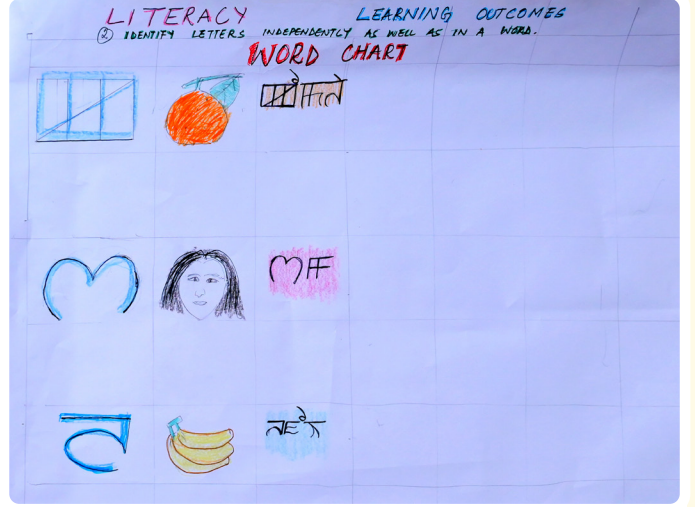 LITERACY LEARNING OUTCOMES
② IDENTIFY LETTERS INDEPENDENTLY AS WELL AS IN A WORD.
WORD CHART
ꯀ ꯀꯣꯝꯂꯥ
ꯁ ꯁꯝ
ꯂ ꯂꯐꯣꯢ